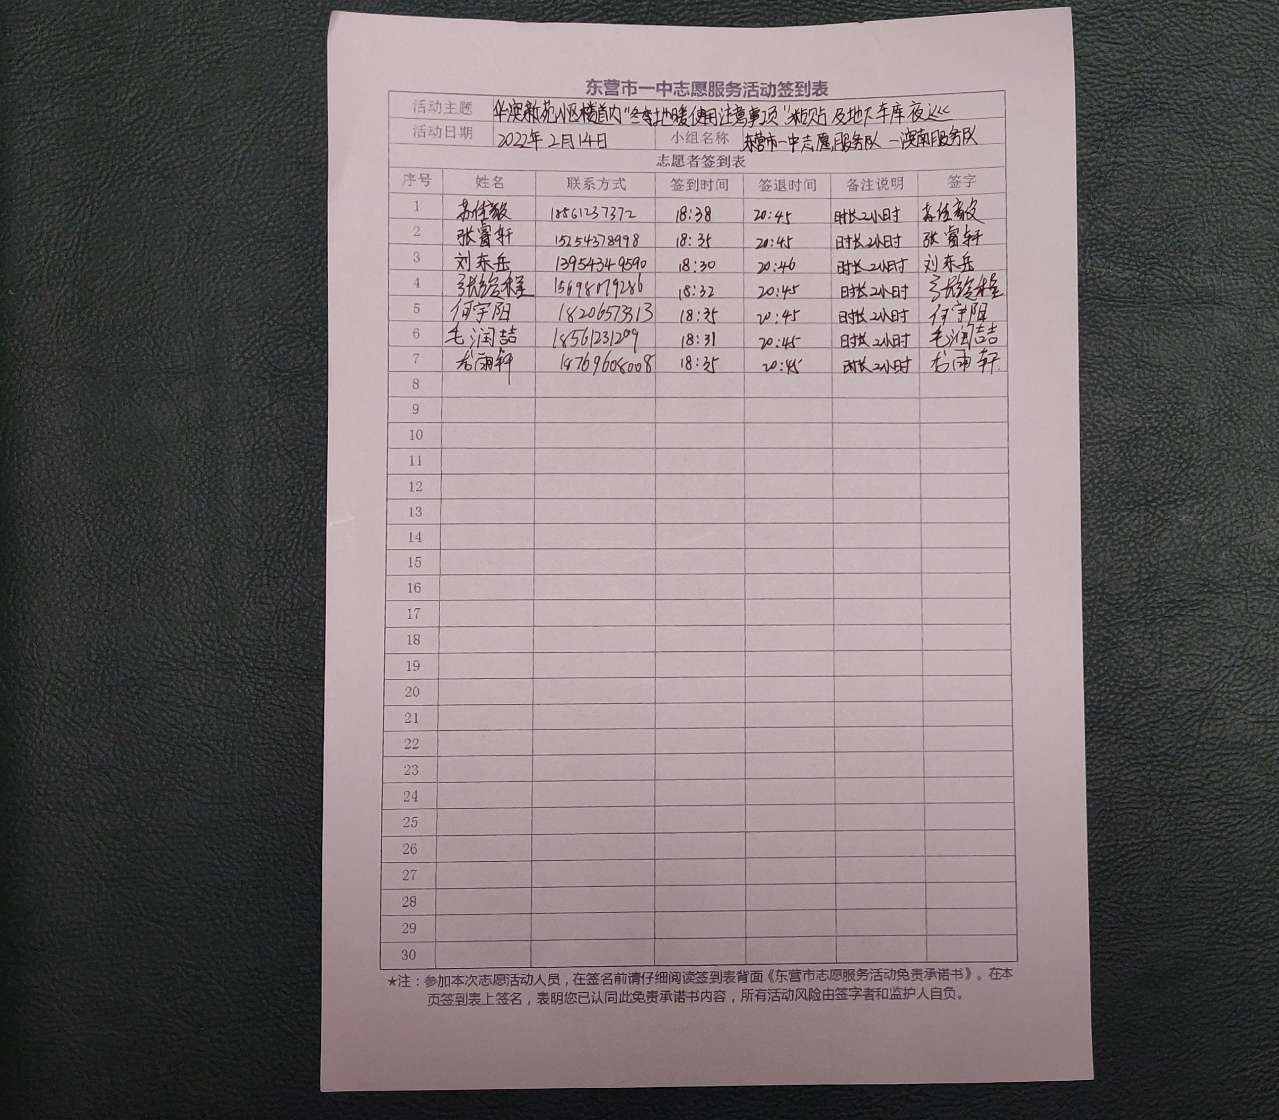 东营市一中志愿服务活动签到表
活动主题 华滨新苑小区楼道内"冬季地暖使用注意事项"粘贴及地下车库夜巡
活动日期 2022年2月14日 小组名称 东营市一中志愿服务队—滨南服务队
志愿者签到表
序号 姓名 联系方式 签到时间 签退时间 备注说明 签字
1 苏佳毅 18561237372 18:38 20:45 时长2小时 苏佳毅
2 张睿轩 15254378998 18:35 20:45 时长2小时 张睿轩
3 刘东岳 13954349590 18:30 20:46 时长2小时 刘东岳
4 15698079286 18:32 20:45 时长2小时
5 何宇阳 18206573313 18:35 20:45 时长2小时 何宇阳
6 毛润喆 18561231209 18:31 20:45 时长2小时 毛润喆
7 尤雨轩 18769608008 18:35 20:45 时长2小时 尤雨轩
8
9
10
11
12
13
14
15
16
17
18
19
20
21
22
23
24
25
26
27
28
29
30
★注：参加本次志愿活动人员，在签名前请仔细阅读签到表背面《东营市志愿服务活动免责承诺书》。在本
页签到表上签名，表明您已认同此免责承诺书内容，所有活动风险由签字者和监护人自负。